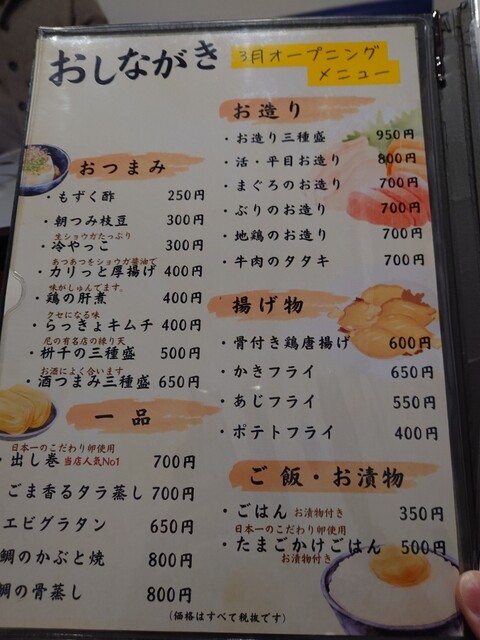 おしながき
3月オープニング
メニュー
おつまみ
・もずく酢 250円
・朝つみ枝豆 300円
生ショウガたっぷり
・冷やっこ 300円
あつあつをショウガ醤油で
・カリっと厚揚げ 400円
味がしゅんでます。
・鶏の肝煮 400円
クセになる味
・らっきょキムチ 400円
尼の有名店の練り天
・枡千の三種盛 500円
お酒によく合います
・酒つまみ三種盛 650円
一品
日本一のこだわり卵使用
・出し巻 当店人気No1 700円
ごま香るタラ蒸し 700円
エビグラタン 650円
鯛のかぶと焼 800円
鯛の骨蒸し 800円
お造り
・お造り三種盛 950円
・活・平目お造り 800円
・まぐろのお造り 700円
・ぶりのお造り 700円
・地鶏のお造り 700円
・牛肉のタタキ 700円
揚げ物
・骨付き鶏唐揚げ 600円
・かきフライ 650円
・あじフライ 550円
・ポテトフライ 400円
ご飯・お漬物
・ごはん お漬物付き 350円
日本一のこだわり卵使用
・たまごかけごはん 500円
お漬物付き
(価格はすべて税抜です)